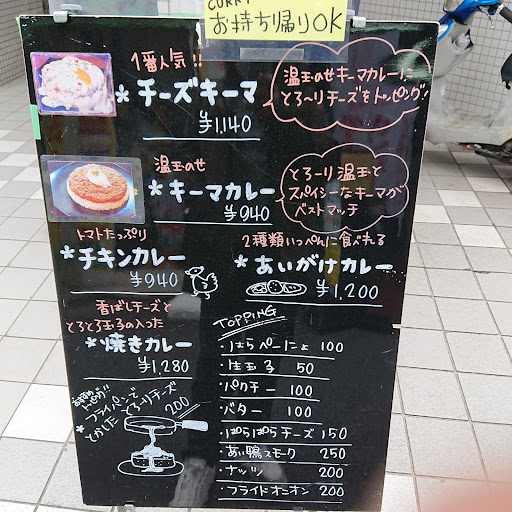 CURRY
お持ち帰りOK
1番人気!!
*チーズキーマ
¥1,140
温玉のせキーマカレーに
とろ〜りチーズをトッピング!
温玉のせ
*キーマカレー
¥940
とろーり温玉と
スパイシーなキーマが
ベストマッチ
トマトたっぷり
*チキンカレー
¥940
2種類いっぺんに食べれる
*あいがけカレー
¥1,200
香ばしチーズと
とろとろ玉子の入った
*焼きカレー
¥1,280
トッピング!!
*フライパンで
とかした とろ〜りチーズ
200
TOPPING
・はらぺーにょ 100
・生玉子 50
・パクチー 100
・バター 100
・ぱらぱらチーズ 150
・あい鴨スモーク 250
・ナッツ 200
・フライドオニオン 200